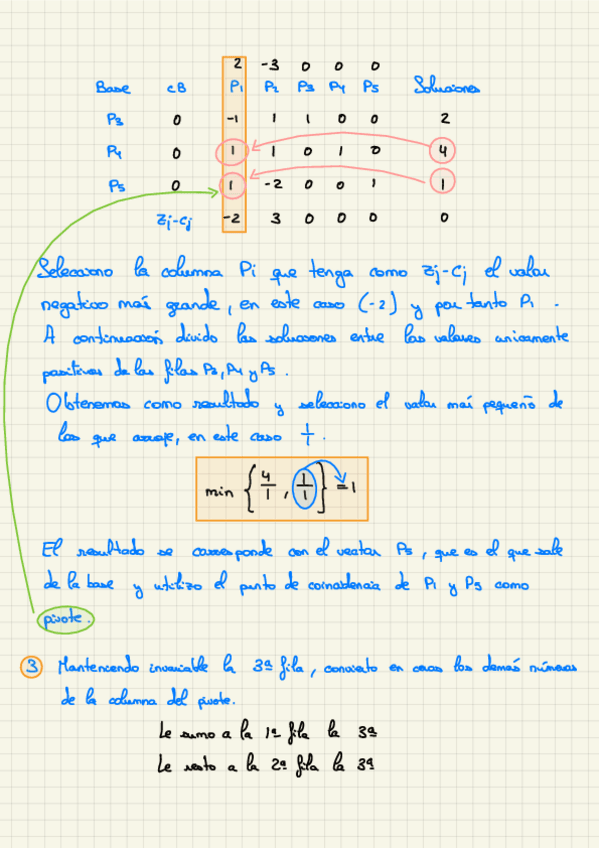 2 -3 0 0 0
Base cB P1 P2 P3 P4 P5 Soluciones
P3 0 -1 1 1 0 0 2
P4 0 1 1 0 1 0 4
P5 0 1 -2 0 0 1 1
Zj-Cj -2 3 0 0 0 0
Selecciono la columna Pi que tenga como Zj-Cj el valor
negativo más grande, en este caso (-2) y por tanto P1.
A continuación divido las soluciones entre los valores unicamente
positivos de las filas P3, P4 y P5.
Obtenemos como resultado y selecciono el valor más pequeño de
los que arroje, en este caso 1/1.
min { 4/1 , 1/1 } = 1
El resultado se corresponde con el vector P5, que es el que sale
de la base y utilizo el punto de coincidencia de P1 y P5 como
pivote.
3 Manteniendo invariable la 3ª fila, convierto en ceros los demás números
de la columna del pivote.
Le sumo a la 1ª fila la 3ª
Le resto a la 2ª fila la 3ª